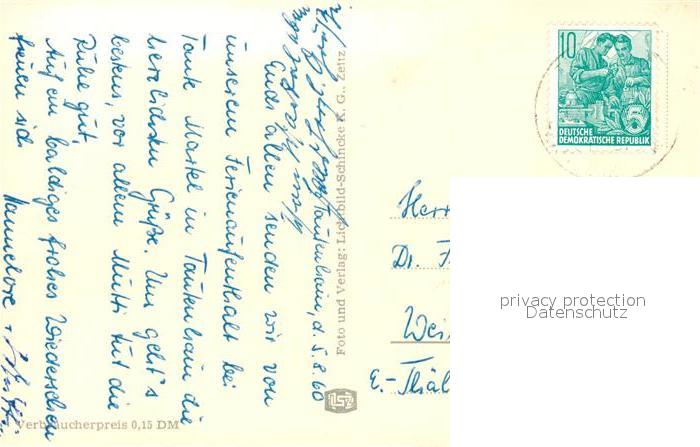 Tautenhain, d. 5.8.60
Euch allen senden wir von
unserem Ferienaufenthalt bei
Tante Martel in Tautenhain die
herzlichsten Grüße. Uns geht's
bestens, vor allem Mutti tut die
Ruhe gut.
Auf ein baldiges frohes Wiedersehen
freuen sich
Hannelore +
Foto und Verlag: Lichtbild-Schincke K. G., Zeitz
Verbraucherpreis 0,15 DM
10
5
DEUTSCHE
DEMOKRATISCHE REPUBLIK
Herr
Dr. F
Wei
E.-Thäl
privacy protection
Datenschutz